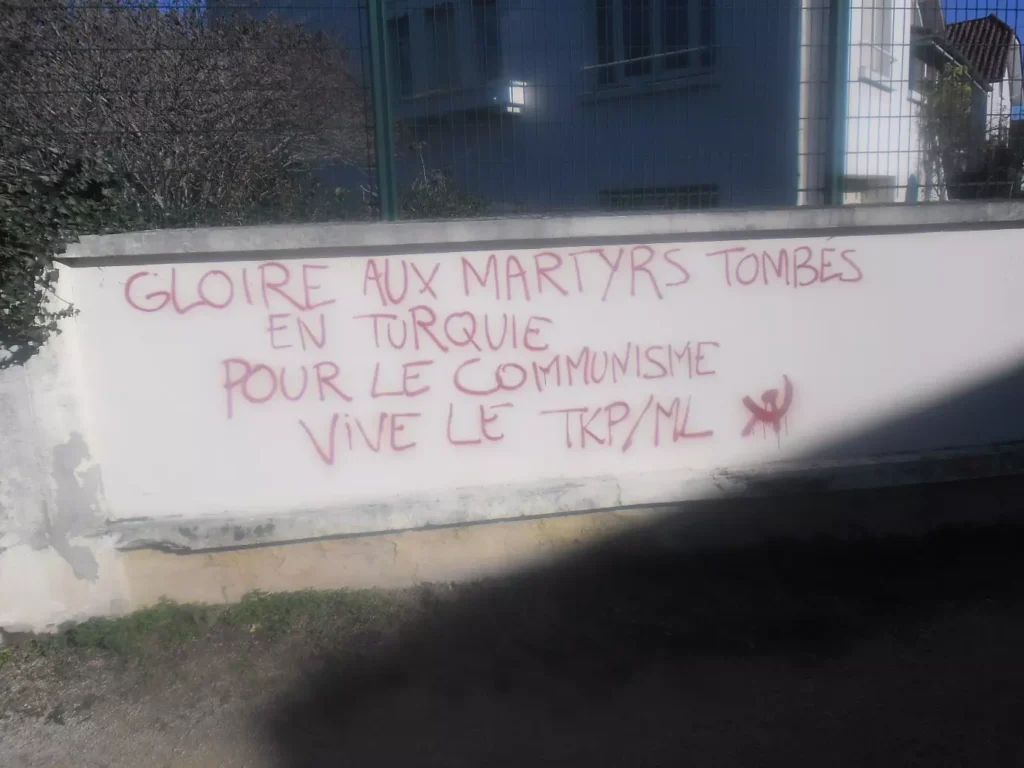 GLOIRE AUX MARTYRS TOMBÉS
EN TURQUIE
POUR LE COMMUNISME
VIVE LE TKP/ML